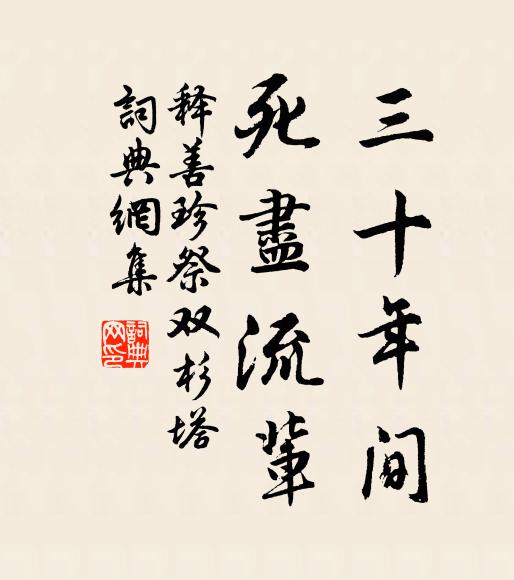 三十年间
死盡流輩
释善珍祭双杉塔
詞典網集
詞典
网印